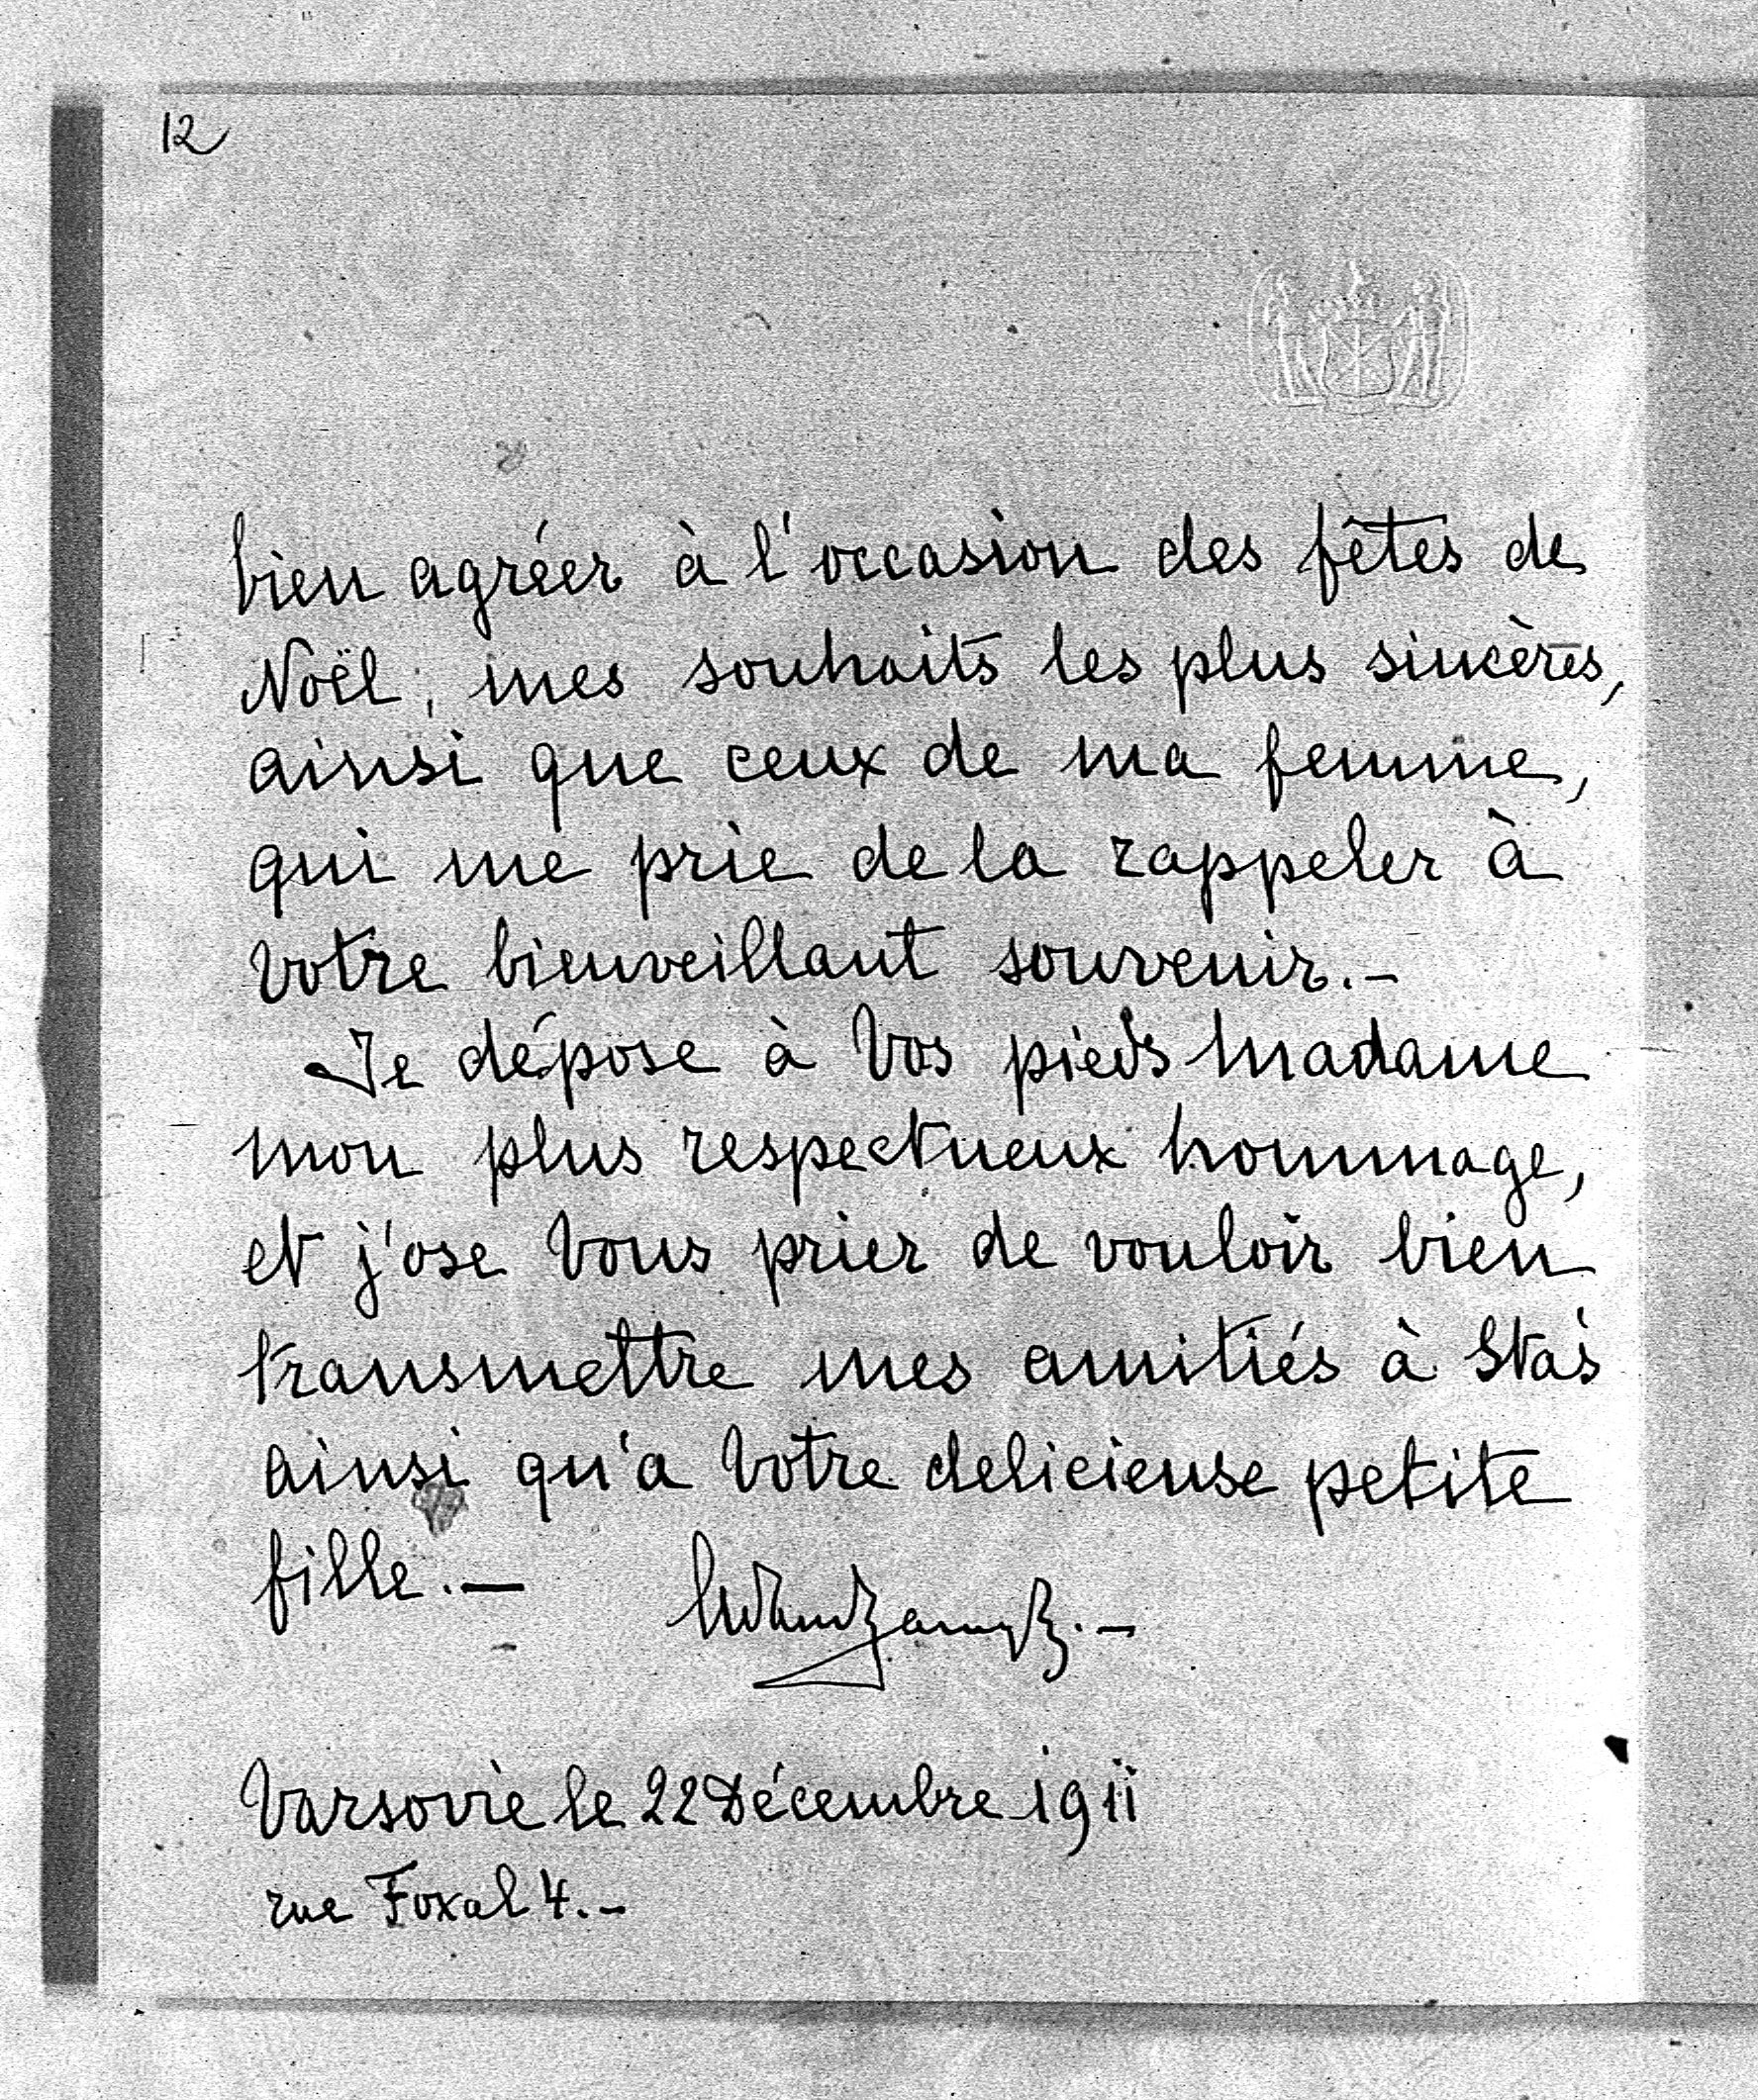 12
bien agréer à l'occasion des fêtes de
Noël, mes souhaits les plus sincères,
ainsi que ceux de ma femme,
qui me prie de la rappeler à
votre bienveillant souvenir.-
Je dépose à Vos pieds Madame
mon plus respectueux hommage,
et j'ose Vous prier de vouloir bien
transmettre mes amitiés à Staś
ainsi qu'a Votre delicieuse petite
fille.-
Varsovie le 22 Décembre 1911
rue Foxal 4.-